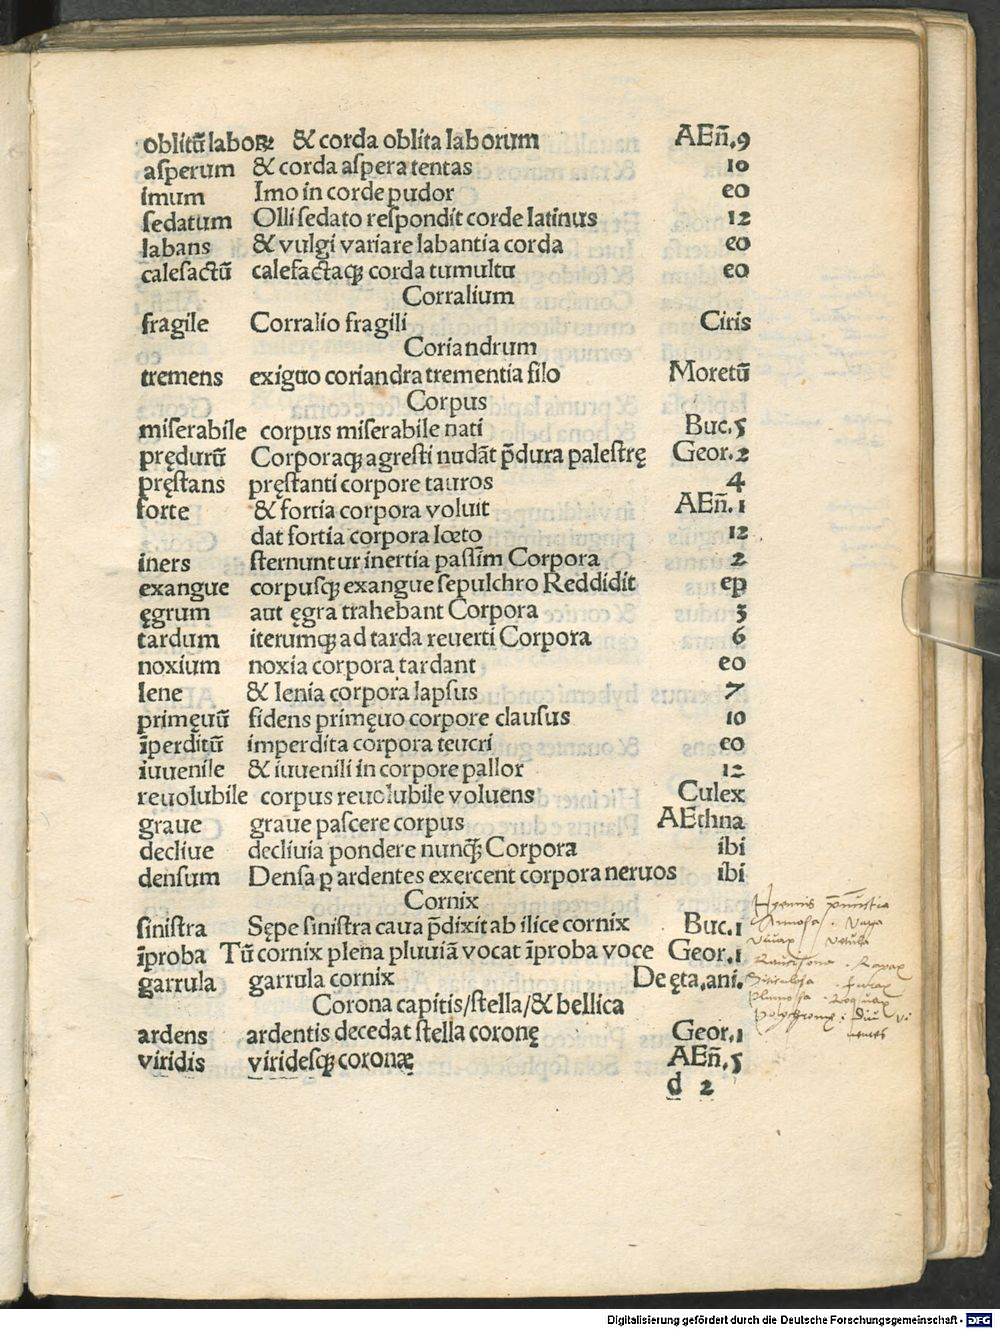 oblitū laboꝝ & corda oblita laborum AEñ.9
asperum & corda aspera tentas 10
imum Imo in corde pudor eo
sedatum Olli sedato respondit corde latinus 12
labans & vulgi variare labantia corda eo
calefactū calefactaqꝫ corda tumultu eo
Corralium
fragile Corralio fragili Ciris
Coriandrum
tremens exiguo coriandra trementia filo Moretū
Corpus
miserabile corpus miserabile nati Buc.5
prędurū Corporaqꝫ agresti nudāt p̄dura palestrę Geor.2
pręstans pręstanti corpore tauros 4
forte & fortia corpora voluit AEñ.1
dat fortia corpora lœto 12
iners sternuntur inertia passim Corpora 2
exangue corpusqꝫ exangue sepulchro Reddidit ep
ęgrum aut ęgra trahebant Corpora 3
tardum iterumqꝫ ad tarda reuerti Corpora 6
noxium noxia corpora tardant eo
lene & lenia corpora lapsus 7
primęuū fidens primęuo corpore clausus 10
īperditū imperdita corpora teucri eo
iuuenile & iuuenili in corpore pallor 12
reuolubile corpus reuolubile voluens Culex
graue graue pascere corpus AEthna
decliue decliuia pondere nunqꝫ Corpora ibi
densum Densa ꝑ ardentes exercent corpora neruos ibi
Cornix
sinistra Sępe sinistra caua p̄dixit ab ilice cornix Buc.1
īproba Tū cornix plena pluuiā vocat īproba voce Geor.1
garrula garrula cornix De ęta.ani.
Corona capitis/stella/& bellica
ardens ardentis decedat stella coronę Geor.1
viridis viridesqꝫ coronæ AEñ.5
d 2
Annosa . Vaga
Viuax / Vetula
Rapax
Plumosa . Loquax
Digitalisierung gefördert durch die Deutsche Forschungsgemeinschaft - DFG